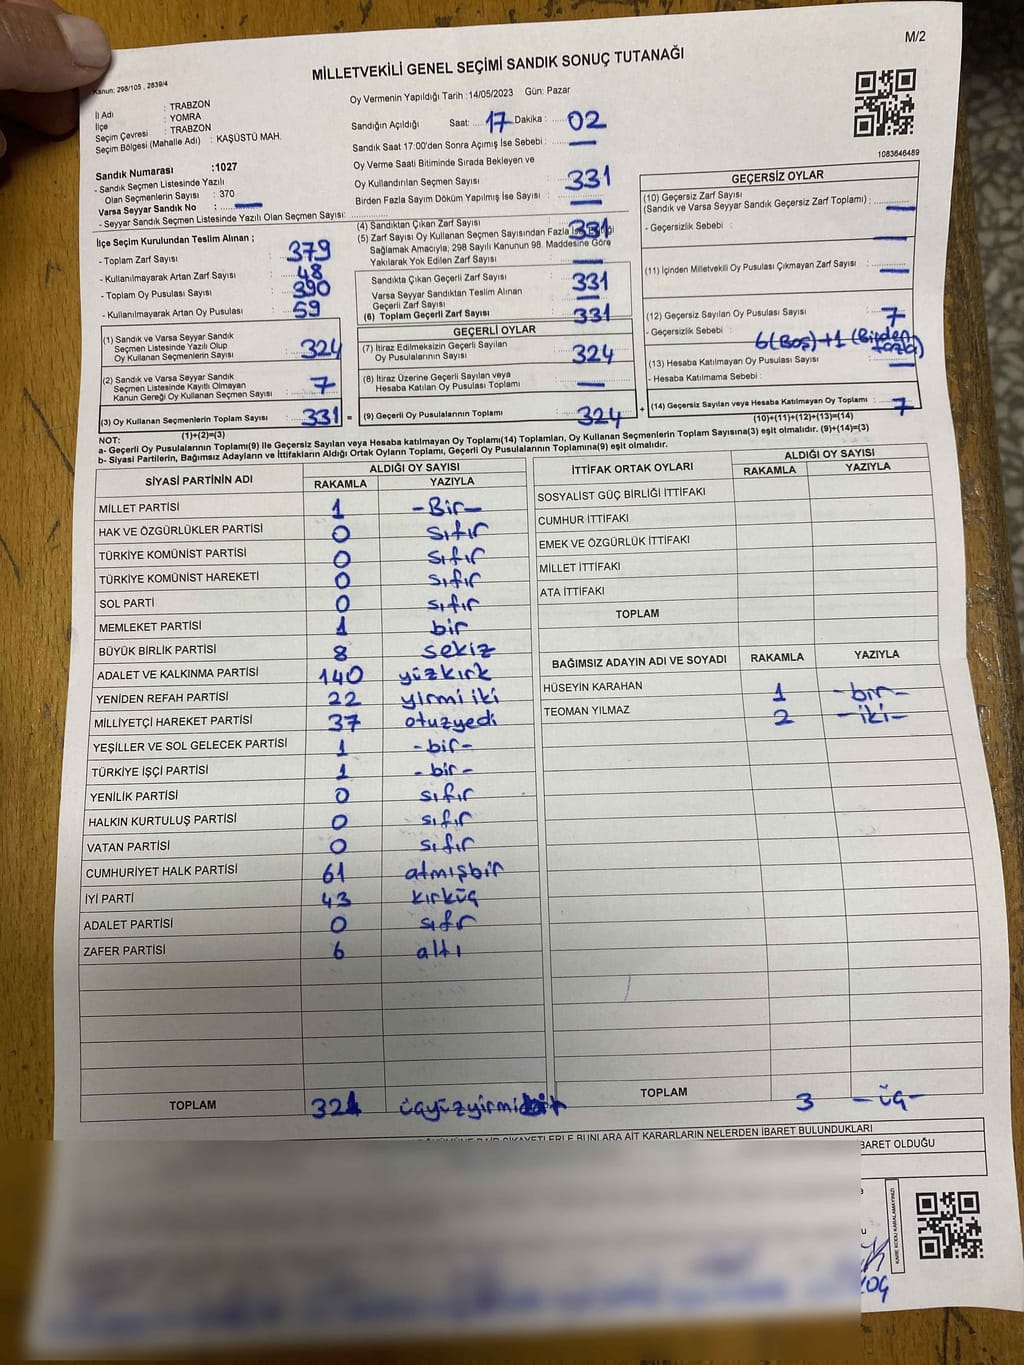 M/2
MİLLETVEKİLİ GENEL SEÇİMİ SANDIK SONUÇ TUTANAĞI
Kanun: 298/105 , 2839/4
İl Adı : TRABZON
İlçe : YOMRA
Seçim Çevresi : TRABZON
Seçim Bölgesi (Mahalle Adı) : KAŞÜSTÜ MAH.
Sandık Numarası :1027
- Sandık Seçmen Listesinde Yazılı
Olan Seçmenlerin Sayısı : 370
Varsa Seyyar Sandık No : —
- Seyyar Sandık Seçmen Listesinde Yazılı Olan Seçmen Sayısı:
Oy Vermenin Yapıldığı Tarih :14/05/2023 Gün: Pazar
Sandığın Açıldığı Saat: 17 Dakika : 02
Sandık Saat 17:00'den Sonra Açılmış İse Sebebi : —
Oy Verme Saati Bitiminde Sırada Bekleyen ve
Oy Kullandırılan Seçmen Sayısı : 331
Birden Fazla Sayım Döküm Yapılmış İse Sayısı : —
1083646489
İlçe Seçim Kurulundan Teslim Alınan ;
- Toplam Zarf Sayısı : 379
- Kullanılmayarak Artan Zarf Sayısı : 48
- Toplam Oy Pusulası Sayısı : 390
- Kullanılmayarak Artan Oy Pusulası : 59
(1) Sandık ve Varsa Seyyar Sandık
Seçmen Listesinde Yazılı Olup
Oy Kullanan Seçmenlerin Sayısı : 324
(2) Sandık ve Varsa Seyyar Sandık
Seçmen Listesinde Kayıtlı Olmayan
Kanun Gereği Oy Kullanan Seçmen Sayısı : 7
(3) Oy Kullanan Seçmenlerin Toplam Sayısı : 331 =
(1)+(2)=(3)
(4) Sandıktan Çıkan Zarf Sayısı : 331
(5) Zarf Sayısı Oy Kullanan Seçmen Sayısından Fazla İse Eşitliği
Sağlamak Amacıyla; 298 Sayılı Kanunun 98. Maddesine Göre
Yakılarak Yok Edilen Zarf Sayısı : —
Sandıkta Çıkan Geçerli Zarf Sayısı : 331
Varsa Seyyar Sandıktan Teslim Alınan
Geçerli Zarf Sayısı : —
(6) Toplam Geçerli Zarf Sayısı : 331
GEÇERLİ OYLAR
(7) İtiraz Edilmeksizin Geçerli Sayılan
Oy Pusulalarının Sayısı : 324
(8) İtiraz Üzerine Geçerli Sayılan veya
Hesaba Katılan Oy Pusulası Toplamı : —
(9) Geçerli Oy Pusulalarının Toplamı : 324 +
GEÇERSİZ OYLAR
(10) Geçersiz Zarf Sayısı
(Sandık ve Varsa Seyyar Sandık Geçersiz Zarf Toplamı) : —
- Geçersizlik Sebebi : —
(11) İçinden Milletvekili Oy Pusulası Çıkmayan Zarf Sayısı : —
(12) Geçersiz Sayılan Oy Pusulası Sayısı : 7
- Geçersizlik Sebebi : 6(Boş)+1 (Birden fazla)
(13) Hesaba Katılmayan Oy Pusulası Sayısı : —
- Hesaba Katılmama Sebebi :
(14) Geçersiz Sayılan veya Hesaba Katılmayan Oy Toplamı : 7
(10)+(11)+(12)+(13)=(14)
NOT:
a- Geçerli Oy Pusulalarının Toplamı(9) ile Geçersiz Sayılan veya Hesaba katılmayan Oy Toplamı(14) Toplamları, Oy Kullanan Seçmenlerin Toplam Sayısına(3) eşit olmalıdır. (9)+(14)=(3)
b- Siyasi Partilerin, Bağımsız Adayların ve İttifakların Aldığı Ortak Oyların Toplamı, Geçerli Oy Pusulalarının Toplamına(9) eşit olmalıdır.
SİYASİ PARTİNİN ADI ALDIĞI OY SAYISI
RAKAMLA YAZIYLA
MİLLET PARTİSİ 1 -Bir-
HAK VE ÖZGÜRLÜKLER PARTİSİ 0 sıfır
TÜRKİYE KOMÜNİST PARTİSİ 0 sıfır
TÜRKİYE KOMÜNİST HAREKETİ 0 sıfır
SOL PARTİ 0 sıfır
MEMLEKET PARTİSİ 1 bir
BÜYÜK BİRLİK PARTİSİ 8 sekiz
ADALET VE KALKINMA PARTİSİ 140 yüzkırk
YENİDEN REFAH PARTİSİ 22 yirmi iki
MİLLİYETÇİ HAREKET PARTİSİ 37 otuzyedi
YEŞİLLER VE SOL GELECEK PARTİSİ 1 -bir-
TÜRKİYE İŞÇİ PARTİSİ 1 -bir-
YENİLİK PARTİSİ 0 sıfır
HALKIN KURTULUŞ PARTİSİ 0 sıfır
VATAN PARTİSİ 0 sıfır
CUMHURİYET HALK PARTİSİ 61 atmışbir
İYİ PARTİ 43 kırküç
ADALET PARTİSİ 0 sıfır
ZAFER PARTİSİ 6 altı
TOPLAM 321 üçyüzyirmibir
İTTİFAK ORTAK OYLARI ALDIĞI OY SAYISI
RAKAMLA YAZIYLA
SOSYALİST GÜÇ BİRLİĞİ İTTİFAKI
CUMHUR İTTİFAKI
EMEK VE ÖZGÜRLÜK İTTİFAKI
MİLLET İTTİFAKI
ATA İTTİFAKI
TOPLAM
BAĞIMSIZ ADAYIN ADI VE SOYADI RAKAMLA YAZIYLA
HÜSEYİN KARAHAN 1 -bir-
TEOMAN YILMAZ 2 -iki-
TOPLAM 3 -üç-
ŞİKAYETLERLE BUNLARA AİT KARARLARIN NELERDEN İBARET BULUNDUKLARI
İBARET OLDUĞU
KARE KODU KARALAMAYINIZ!